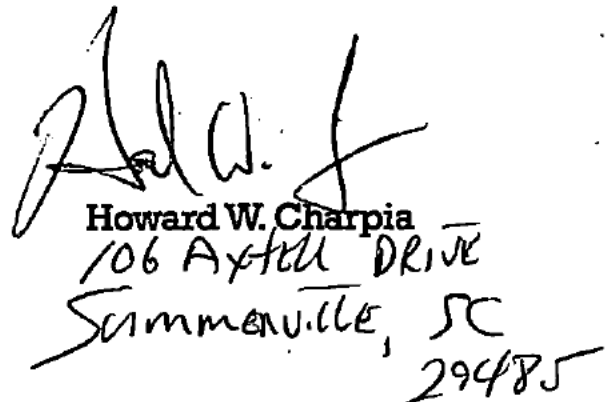 Howard W. Charpia
106 Axtell DRIVE
Summerville, SC
29485